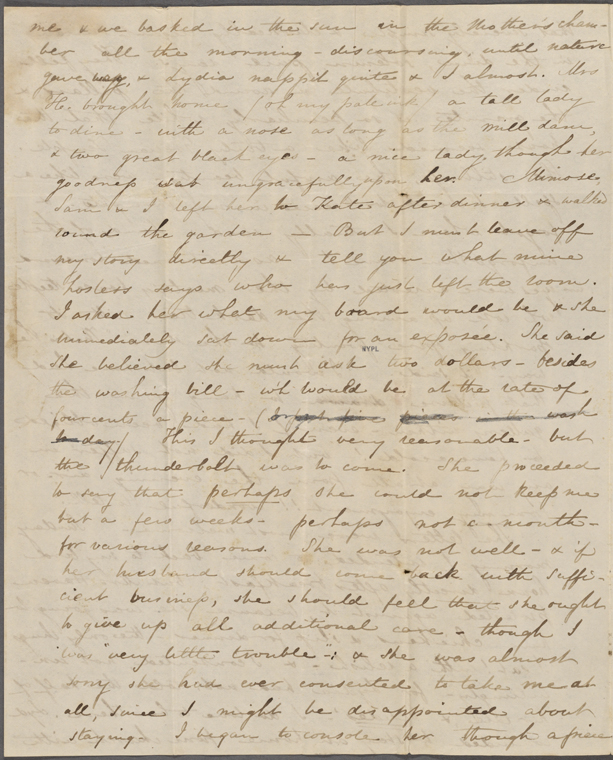 me & we basked in the sun in the Mother's cham-
ber all the morning - discoursing, until nature
gave way, & Lydia nappit quite & I almost. Mrs
H. brought home (oh my palank) a tall lady
to dine - with a nose as long as the mill dam,
& two great black eyes - a nice lady, though her
goodness sat ungracefully upon her. Mimose,
Sam & I left her to Kate after dinner & walked
round the garden — But I must leave off
my story directly & tell you what mine
hostess says who has just left the room.
I asked her what my board would be & she
immediately sat down for an exposée. She said
NYPL
she believed she must ask two dollars - besides
the washing bill - wh would be at the rate of
four cents a piece - ( pieces in the wash
to day) This I thought very reasonable - but
the thunderbolt was to come. She proceeded
to say that perhaps she could not keep me
but a few weeks - perhaps not a month -
for various reasons. She was not well - & if
her husband should come back with suffi-
cient business, she should feel that she ought
to give up all additional care - though I
was "very little trouble" -; & she was almost
sorry she had ever consented to take me at
all, since I might be disappointed about
staying - I began to console her though a price